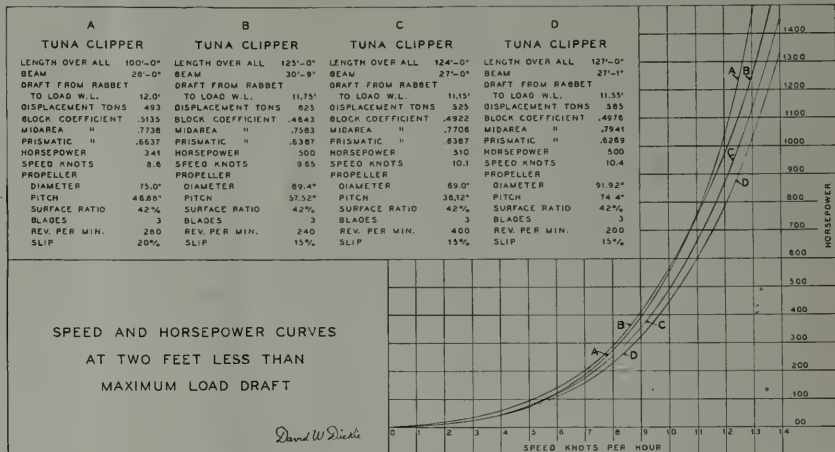 A
TUNA CLIPPER
LENGTH OVER ALL 100'-0"
BEAM 26'-0"
DRAFT FROM RABBET
TO LOAD W.L. 12.0'
DISPLACEMENT TONS 493
BLOCK COEFFICIENT .5135
MIDAREA " .7738
PRISMATIC " .6637
HORSEPOWER 341
SPEED KNOTS 8.6
PROPELLER
DIAMETER 75.0"
PITCH 46.66"
SURFACE RATIO 42%
BLADES 3
REV. PER MIN. 280
SLIP 20%
B
TUNA CLIPPER
LENGTH OVER ALL 125'-0"
BEAM 30'-9"
DRAFT FROM RABBET
TO LOAD W.L. 11.75'
DISPLACEMENT TONS 625
BLOCK COEFFICIENT .4843
MIDAREA " .7583
PRISMATIC " .6387
HORSEPOWER 500
SPEED KNOTS 9.65
PROPELLER
DIAMETER 89.4"
PITCH 57.52"
SURFACE RATIO 42%
BLADES 3
REV. PER MIN. 240
SLIP 15%
C
TUNA CLIPPER
LENGTH OVER ALL 124'-0"
BEAM 27'-0"
DRAFT FROM RABBET
TO LOAD W.L. 11.15'
DISPLACEMENT TONS 525
BLOCK COEFFICIENT .4922
MIDAREA " .7706
PRISMATIC " .6387
HORSEPOWER 510
SPEED KNOTS 10.1
PROPELLER
DIAMETER 69.0"
PITCH 36.12"
SURFACE RATIO 42%
BLADES 3
REV. PER MIN. 400
SLIP 15%
D
TUNA CLIPPER
LENGTH OVER ALL 127'-0"
BEAM 27'-1"
DRAFT FROM RABBET
TO LOAD W.L. 11.55'
DISPLACEMENT TONS 585
BLOCK COEFFICIENT .4978
MIDAREA " .7941
PRISMATIC " .6269
HORSEPOWER 500
SPEED KNOTS 10.4
PROPELLER
DIAMETER 91.92"
PITCH 74.4"
SURFACE RATIO 42%
BLADES 3
REV. PER MIN. 200
SLIP 15%
1400
1300
A B
1200
1100
1000
C
900
D
800
700
HORSEPOWER
600
500
400
B C
300
A D
200
100
00
SPEED AND HORSEPOWER CURVES
AT TWO FEET LESS THAN
MAXIMUM LOAD DRAFT
David W Dickie
0 1 2 3 4 5 6 7 8 9 10 11 12 13 14
SPEED KNOTS PER HOUR